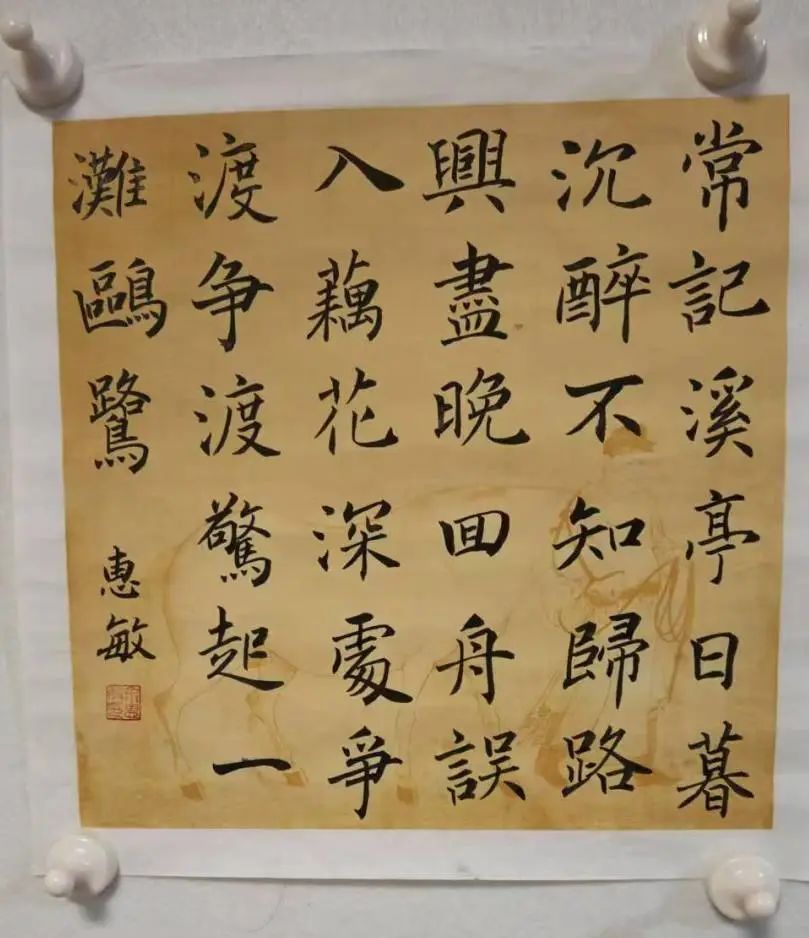 常記溪亭日暮
沉醉不知歸路
興盡晚回舟誤
入藕花深處爭
渡争渡驚起一
灘鷗鷺
惠敏